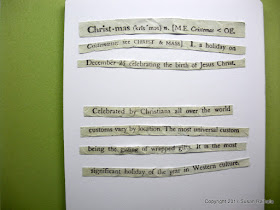 Christ·mas (kris'məs) n. [M.E. Cristmas < OE.
CHRIST & MASS]. 1. a holiday on
December 25 celebrating the birth of Jesus Christ.
Celebrated by Christians all over the world
customs vary by location. The most universal custom
being the giving of wrapped gifts. It is the most
significant holiday of the year in Western culture.
Copyright 201